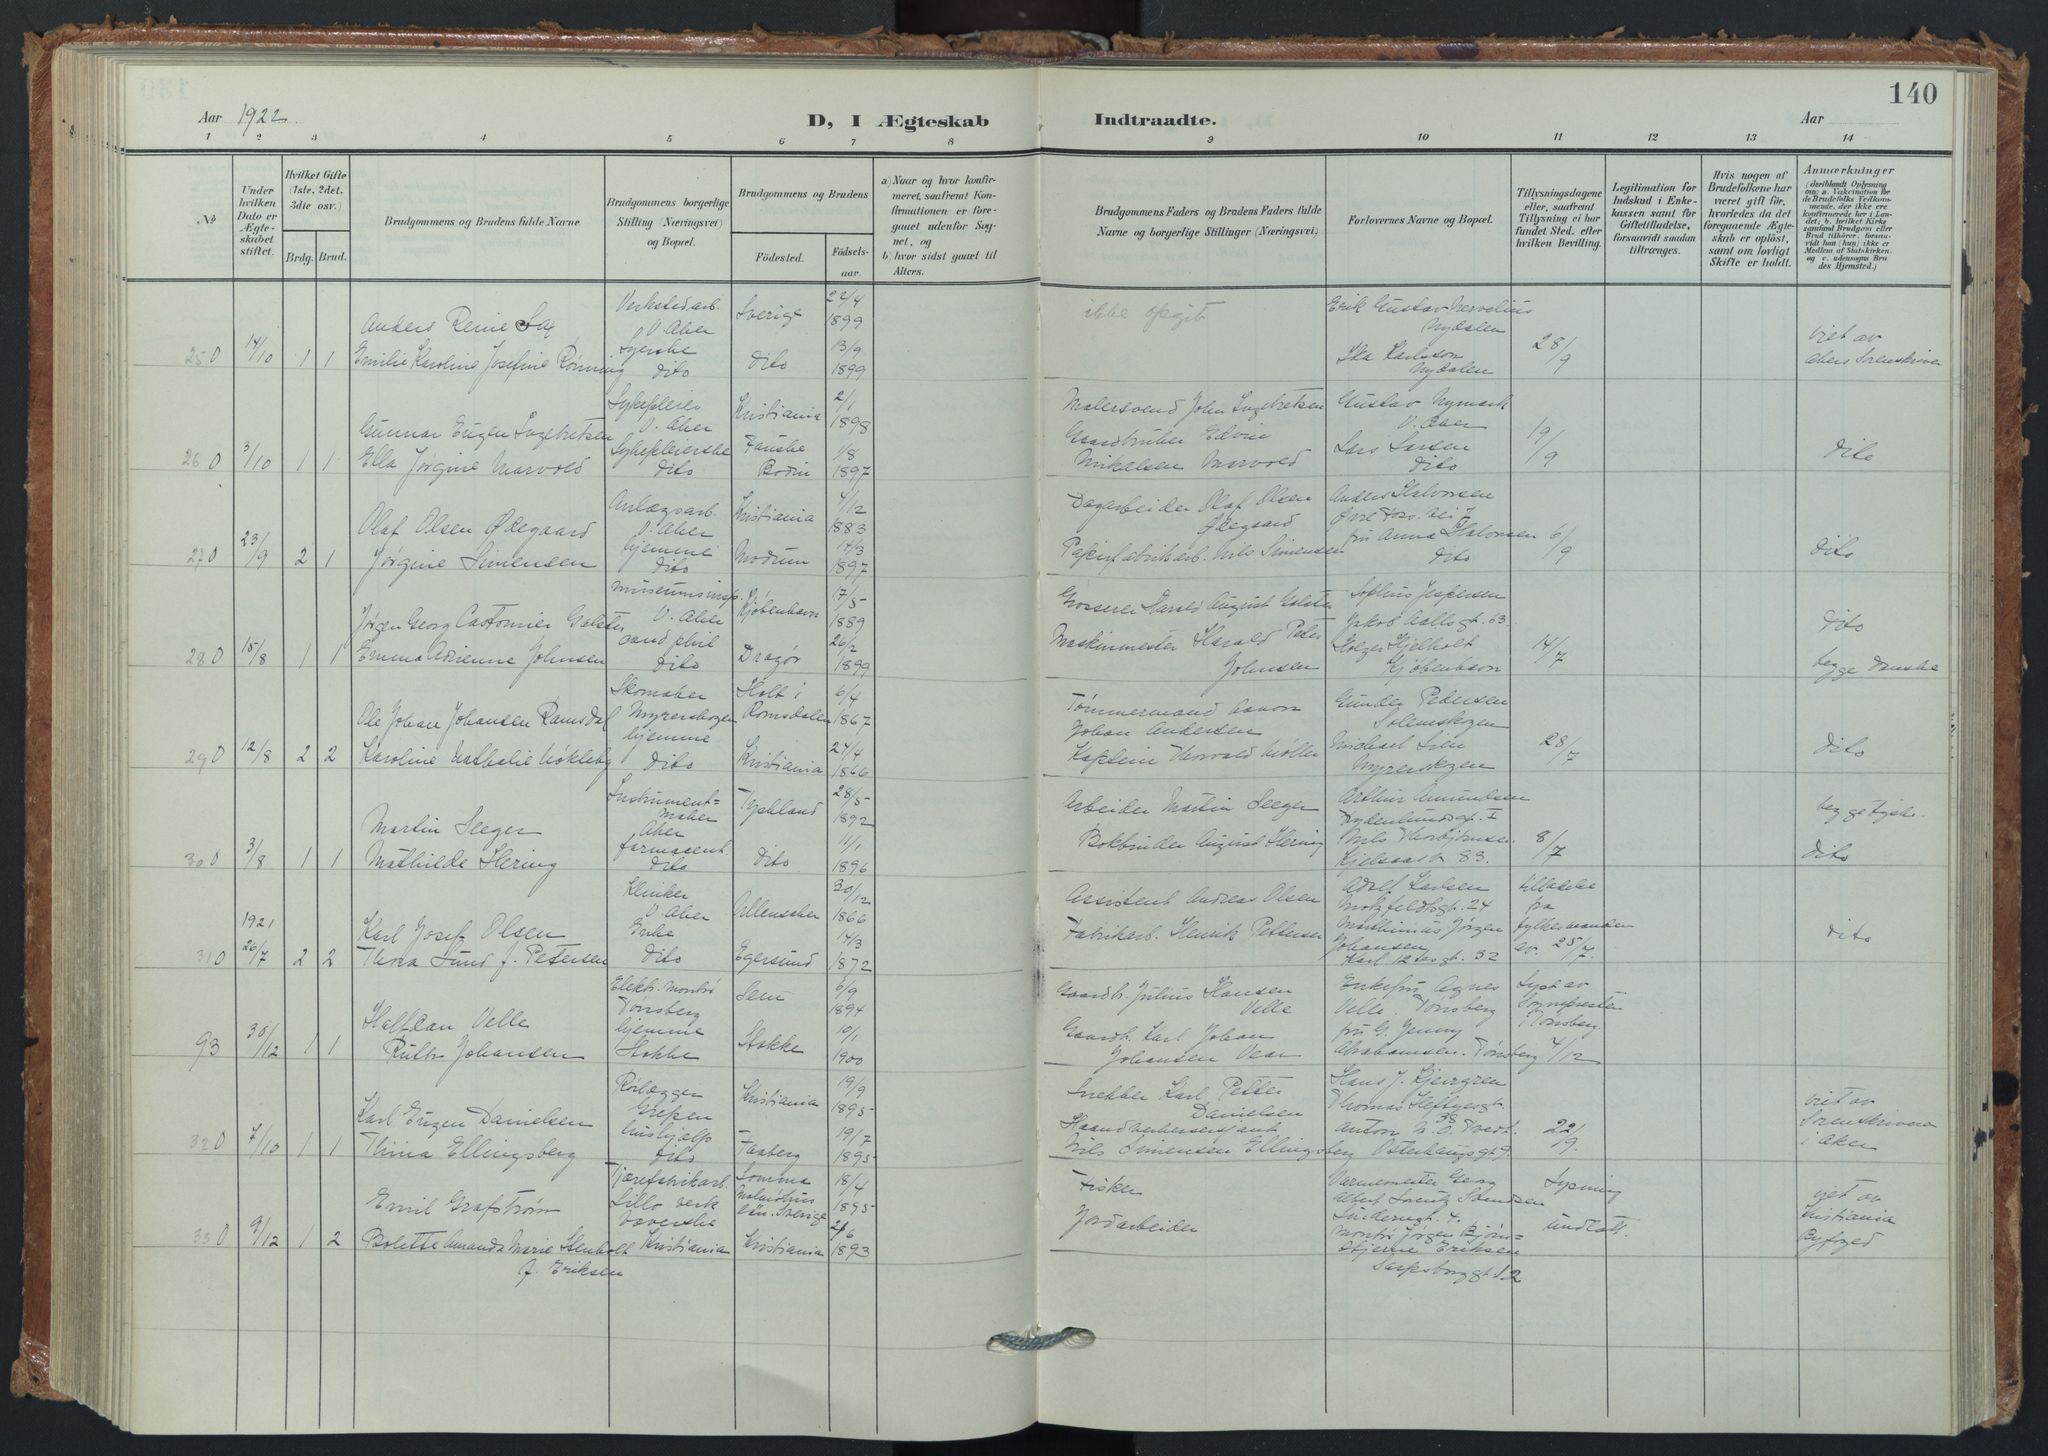 140
Aar 1922.
D, I Ægteskab
Indtraadte.
Aar
1 2 3 4 5 6 7 8 9 10 11 12 13 14
№
Under hvilken Dato er Ægteskabet stiftet.
Hvilket Gifte (1ste, 2det, 3die osv.)
Brdg. Brud.
Brudgommens og Brudens fulde Navne.
Brudgommens borgerlige Stilling (Næringsvei) og Bopæl.
Brudgommens og Brudens
Fødested.
Fødselsaar.
a) Naar og hvor konfirmeret, saafremt Konfirmationen er foregaaet udenfor Sognet, og
b) hvor sidst gaaet til Alters.
Brudgommens Faders og Brudens Faders fulde Navne og borgerlige Stillinger (Næringsvei).
Forlovernes Navne og Bopæl.
Tillysningsdagene eller, saafremt Tillysning ei har fundet Sted, efter hvilken Bevilling.
Legitimation for Indskud i Enkekassen samt for Giftetilladelse, forsaavidt saadan tiltrænges.
Hvis nogen af Brudefolkene har været gift før, hvorledes da det foregaaende Ægteskab er opløst, samt om lovligt Skifte er holdt.
Anmerkninger
(deriblandt Oplysning om: a. Vakcination for de Brudefolks Vedkommende, der ikke ere konfirmerede her i Landet; b. hvilket Kirkesamfund Brudgom eller Brud tilhører, forsaavidt han (hun) ikke er Medlem af Statskirken, og c. udensogns Brudes Hjemsted.)
Verkstedarb. Sverige 22/4 ikke opgit Erik Gustav
Anders Reine V. Aker 1899 Nydalen
Syerske 13/9 Karlsson 28/9 viet av
25 0 14/10 1 1 Emilie Karoline Josefine Rønning dito dito 1899 Nydalen Akers Sorenskriver
Sykepleier Kristiania 2/1 Malersvend John Ingebretsen Gustav Nymark
Gunnar Eugen Ingebretsen V. Aker 1898 Gaardbruker Edvin V. Aker 19/9
26 0 3/10 1 1 Ella Jørgine Marvold Sykepleierske Fauske 1/8 Nikalsen Marvold Lars Larsen dito
dito Bodin 1897 dito
Anlægsarb. Kristiania 4/12 Dagarbeider Olaf Olsen Anders Halvorsen
Olaf Olsen Ødegaard V. Aker 1883 Ødegaard
27 0 23/9 2 1 Jørgine Simensen hjemme Modum 14/3 Papirfabrikarb. Nils Simensen fru Anna Halvorsen 6/9 dito
dito 1897 dito
museumsinsp. Kjøbenhavn 17/5 Grosserer Harald August Sophus Jespersen
Jørgen Georg V. Aker 1889 Jakob Aallsgt. 63. dito
28 0 15/8 1 1 Emma Adrienne Johnsen cand phil Dragør 26/2 Maskinmester Harald Peter Holger Hjelholt 14/7
dito 1899 Johnsen Kjøbenhavn begge danske
Skomaker Holt i 6/4 Tømmermand Gunder Pedersen
Ole Johan Johansen Ramsdal Myrerskogen Romsdalen 1867 Johan Andersen Solemskogen
29 0 12/8 2 2 Karoline Nathalie Nøkleby hjemme Kristiania 24/4 Kaptein Michael Lien 28/7 dito
dito 1866 Myrerskogen
Instrumentmaker Tyskland 28/5 Arbeider Martin Seeger Arthur Amundsen begge tyske.
Martin Seeger Aker 1892
30 0 3/8 1 1 Mathilde Hering farmasent. dito 11/1 Bokbinder August Hering Nils 8/7 dito
dito 1896 Kjelsaasv 83.
1921 Klinker Ullensaker 30/12 Assistent Andreas Olsen Adolf Karlsen tilladelse
Karl Josef Olsen V. Aker 1866 Motzfeldtsgt. 24 fra
Enke 14/3 Fabrikarb. Henrik Pettersen Mathinius Jørgen fylkesmanden dito
31 0 26/7 2 2 Thora Lund f. Petersen dito Egersund 1872 Johansen av 25/7.
Karl 12tesgt. 32
Elektr. montør Sem 6/9 Gaardbr. Julius Hansen Enkefru Agnes Lyst av
Halfdan Velle Tønsberg 1894 Velle Velle. Tønsberg Sognepresten
hjemme 10/1 Gaardb. Karl Johan fru G. Jenny i Tønsberg.
93 30/12 1 1 Ruth Johansen Stokke Stokke 1900 Johansen Vear Abrahamsen. Tønsberg 4/12
Rørlægger Kristiania 19/9 Snekker Karl Petter Hans J. Kjergren
Karl Eugen Danielsen Grefsen 1895 Danielsen Thomas Heftyesgt. 38 viet av
32 0 7/10 1 1 Thina Ellingsberg hushjelp Faaberg 19/7 Haandverkersersjant Anton N. O. Tvedt. 22/9. Sorenskriveren
dito 1895 Nils Simensen Ellingsberg Osterhausgt 9. i Aker
Tjærefabrikarb. Lomma 18/4 Fisker Varmemester Georg Lysning
Emil Grafstrøm Lillo verk Malmøhus 1895 Albert Lorentz Svendsen viet av
Væverske län. Sverige Jordarbeider undlatt. Kristiania
33 0 9/12 1 2 Bolette Amanda Marie Stenholt Kristiania Kristiania 21/6 Montør Jørgen Bjørnstjerne Eriksen Byfoged
f. Eriksen 1893 Sarpsborggt 12